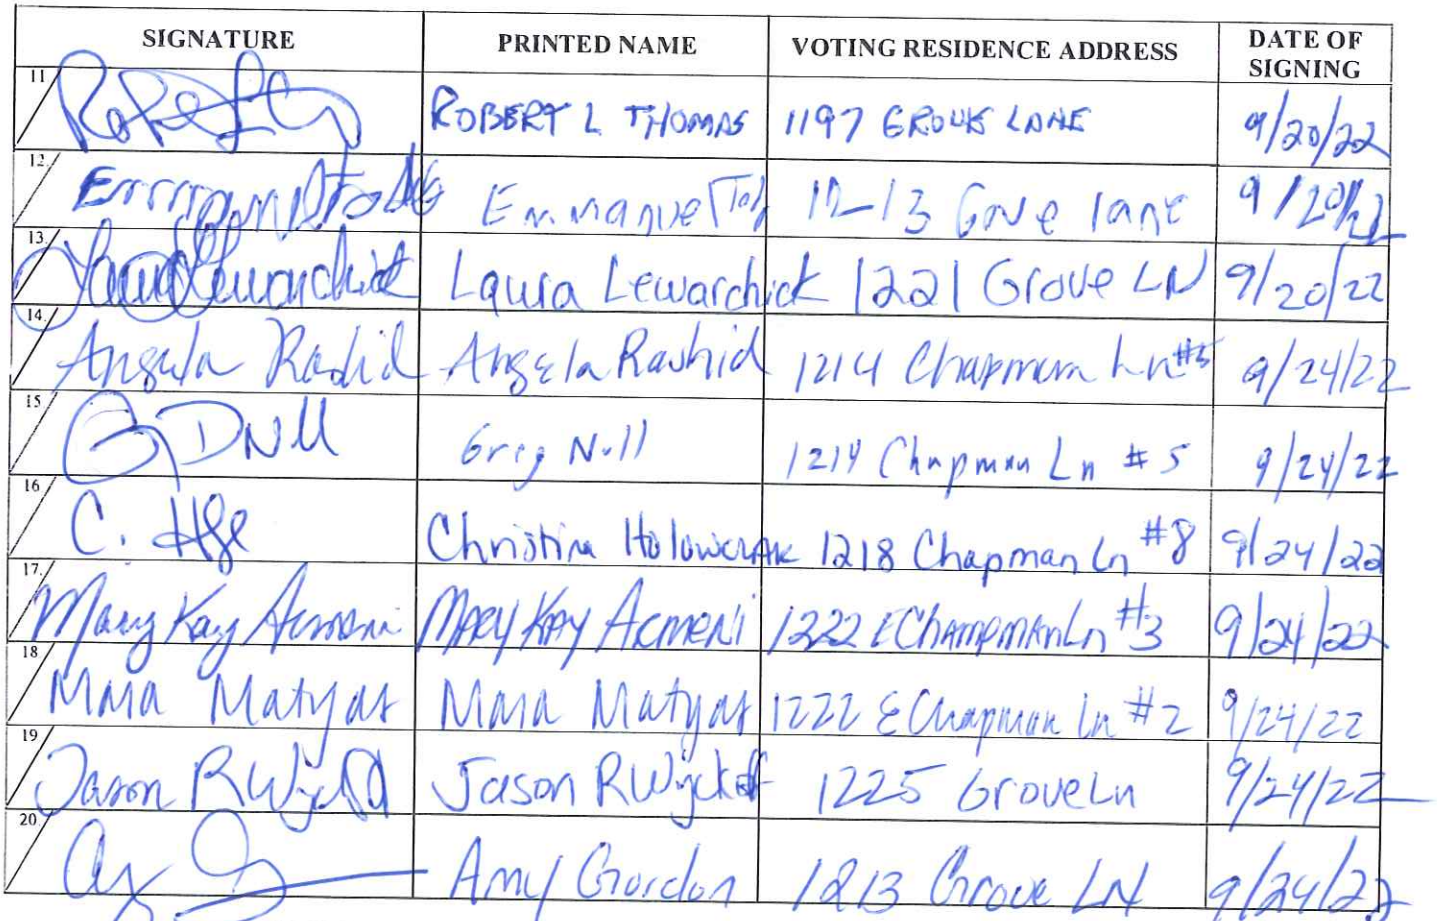 SIGNATURE PRINTED NAME VOTING RESIDENCE ADDRESS DATE OF SIGNING
11 ROBERT L THOMAS 1197 GROVE LANE 9/20/22
12. Emmanuel 12-13 Gove lane 9/20/22
13. Laura Lewarchick Laura Lewarchick 1221 Grove LN 9/20/22
14. Angela Rashid Angela Rashid 1214 Chapman Ln #5 9/24/22
15 G DNull Greg Null 1214 Chapman Ln #5 9/24/22
16 C. Christina Holowczak 1218 Chapman Ln #8 9/24/22
17. Mary Kay Armeni MARY KAY ARMENI 1222 E CHAMPMAN Ln #3 9/24/22
18 Maia Matyas Maia Matyas 1222 E Chapman Ln #2 9/24/22
19 Jason R Wyckoff Jason R Wyckoff 1225 Grove Ln 9/24/22
20 Amy Gordon 1213 Grove LN 9/24/22